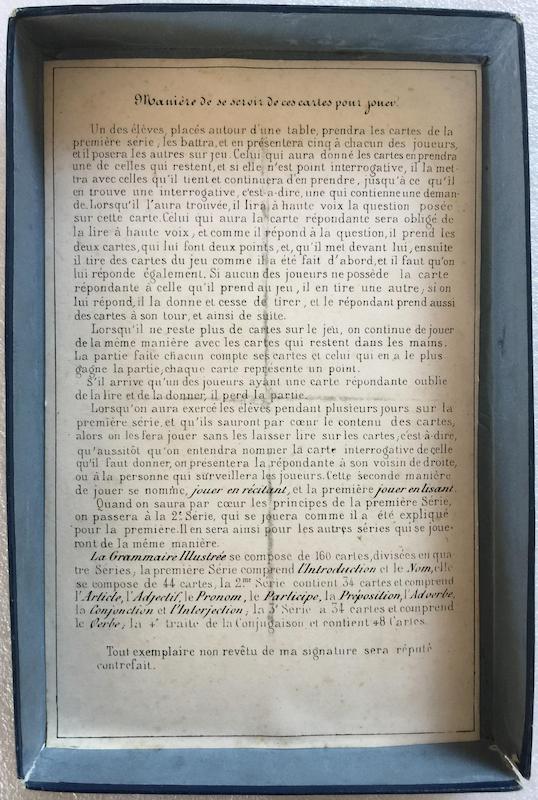 Manière de se servir de ces cartes pour jouer.
Un des élèves, placés autour d'une table, prendra les cartes de la
première série, les battra, et en présentera cinq à chacun des joueurs,
et il posera les autres sur jeu. Celui qui aura donné les cartes en prendra
une de celles qui restent, et si elle n'est point interrogative, il la met-
tra avec celles qu'il tient et continuera d'en prendre, jusqu'à ce qu'il
en trouve une interrogative, c'est-a-dire, une qui contienne une deman-
de. Lorsqu'il l'aura trouvée, il lira à haute voix la question posée
sur cette carte. Celui qui aura la carte répondante sera obligé de
la lire à haute voix, et comme il répond à la question, il prend les
deux cartes, qui lui font deux points, et, qu'il met devant lui, ensuite
il tire des cartes du jeu comme il a été fait d'abord, et il faut qu'on
lui réponde également. Si aucun des joueurs ne possède la carte
répondante à celle qu'il prend au jeu, il en tire une autre; si on
lui répond, il la donne et cesse de tirer, et le répondant prend aussi
des cartes à son tour, et ainsi de suite.
Lorsqu'il ne reste plus de cartes sur le jeu, on continue de jouer
de la même manière avec les cartes qui restent dans les mains.
La partie faite chacun compte ses cartes et celui qui en a le plus
gagne la partie, chaque carte représente un point.
S'il arrive qu'un des joueurs ayant une carte répondante oublie
de la lire et de la donner, il perd la partie.
Lorsqu'on aura exercé les élèves pendant plusieurs jours sur la
première série, et qu'ils sauront par cœur le contenu des cartes,
alors on les fera jouer sans les laisser lire sur les cartes, c'est-à-dire,
qu'aussitôt qu'on entendra nommer la carte interrogative de celle
qu'il faut donner, on présentera la répondante à son voisin de droite,
ou à la personne qui surveillera les joueurs. Cette seconde manière
de jouer se nomme, jouer en récitant, et la première jouer en lisant.
Quand on saura par cœur les principes de la première Série,
on passera à la 2e Série, qui se jouera comme il a été expliqué
pour la première. Il en sera ainsi pour les autres séries qui se joue-
ront de la même manière.
La Grammaire Illustrée se compose de 160 cartes, divisées en qua-
tre Séries; la première Série comprend l'Introduction et le Nom, elle
se compose de 44 cartes, la 2me Série contient 34 cartes et comprend
l'Article, l'Adjectif, le Pronom, le Participe, la Préposition, l'Adverbe,
la Conjonction et l'Interjection; la 3e Série a 34 cartes et comprend
le Verbe; la 4e traite de la Conjugaison et contient 48 Cartes.
Tout exemplaire non revêtu de ma signature sera réputé
contrefait.